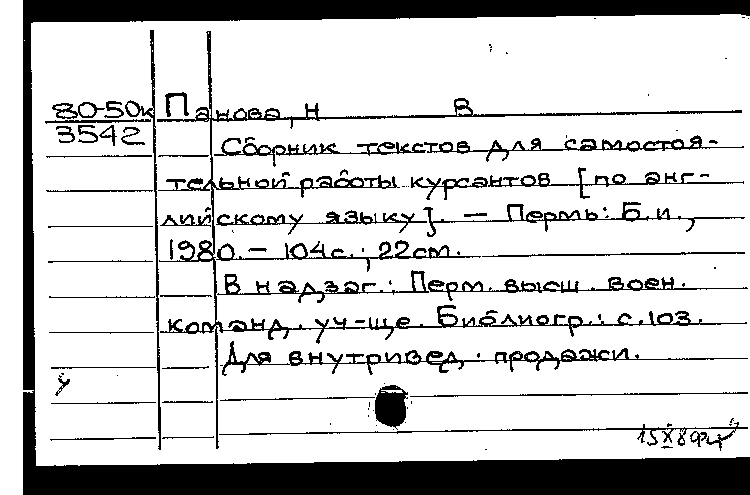 80-50к Панова, Н В
3542
Сборник текстов для самостоя-
тельной работы курсантов [по анг-
лийскому языку]. — Пермь: Б.и.,
1980. — 104с.; 22см.
В надзаг.: Перм. высш. воен.
команд. уч-ще. Библиогр.: с.103.
Для внутривед. продажи.